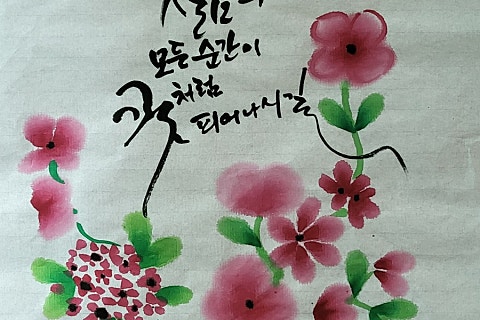 모든 순간이
꽃처럼
피어나시길